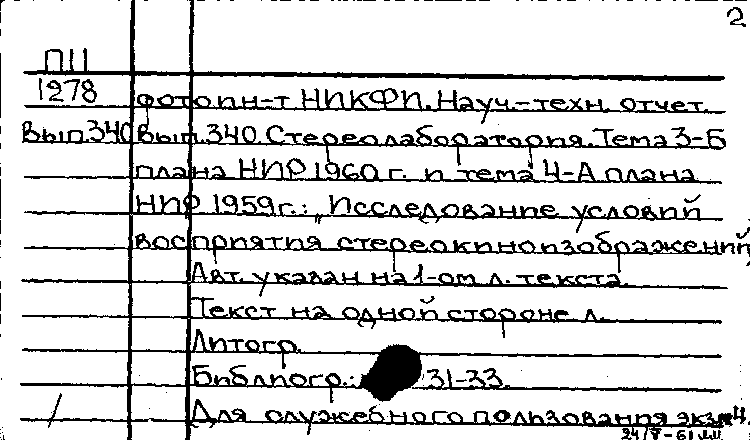 2
П11
1278 фотоин-т НИКФИ. Науч.-техн. отчет.
Вып.340 Вып.340. Стереолаборатория. Тема 3-Б
плана НИР 1960 г. и тема 4-А плана
НИР 1959 г.: „Исследование условий
восприятия стереокиноизображений
Авт. указан на 1-ом л. текста.
Текст на одной стороне л.
Литогр.
Библиогр.: 31-33.
Для служебного пользования экз. №4
24/V-61